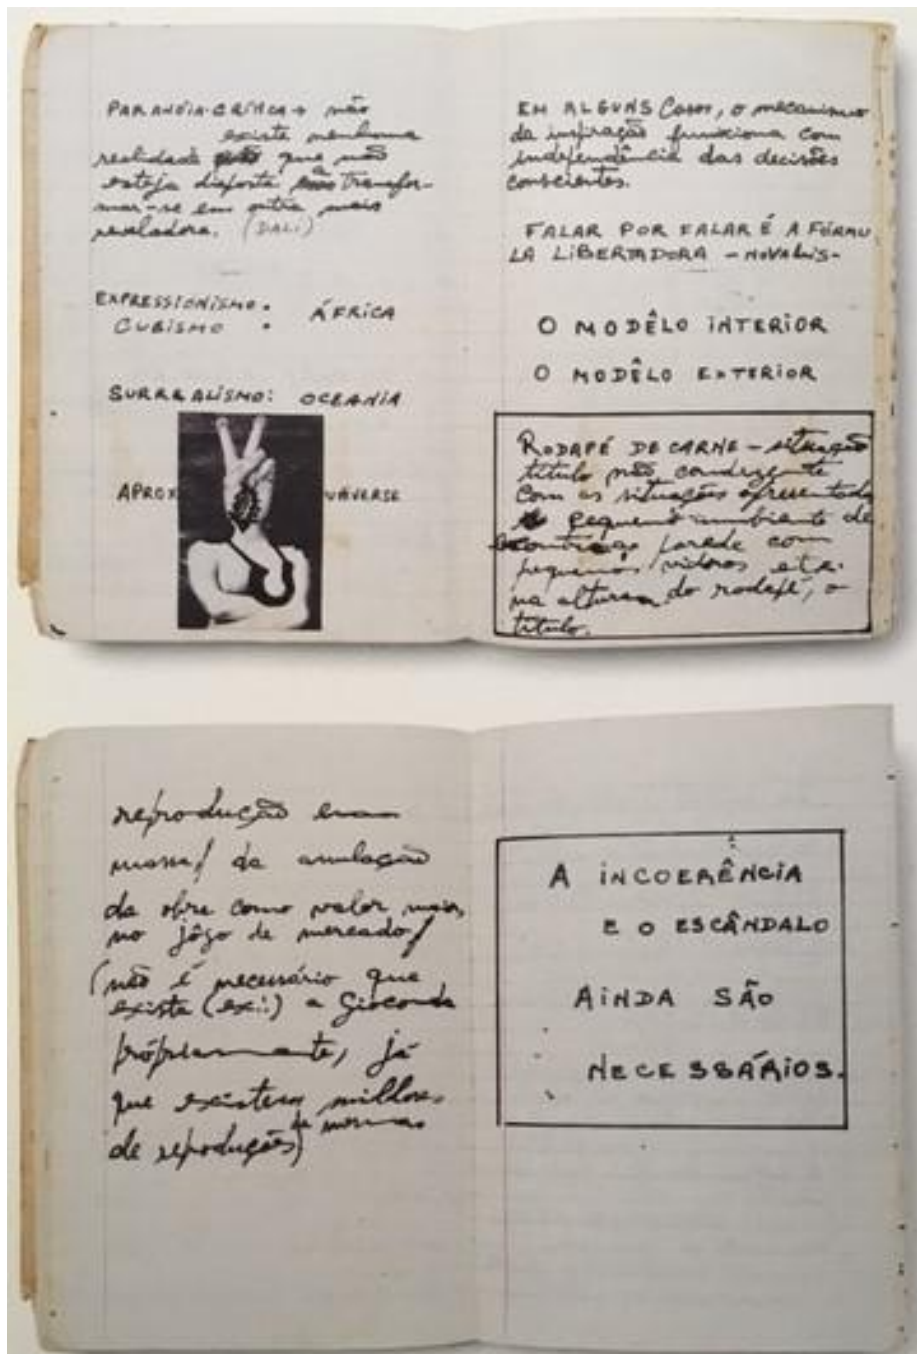 PARANÓIA-CRÍTICA → não
existe nenhuma
realidade que não
esteja disposta a transfor-
mar-se em outra mais
reveladora. (DALI)
EXPRESSIONISMO.
CUBISMO . ÁFRICA
SURREALISMO: OCEANIA
APROX UNIVERSE
EM ALGUNS Casos, o mecanismo
da inspiração funciona com
independência das decisões
conscientes.
FALAR POR FALAR É A FÓRMU
LA LIBERTADORA - NOVALIS -
O MODÊLO INTERIOR
O MODÊLO EXTERIOR
RODAPÉ DE CARNE - situação
título não condizente
com as situações apresentada
pequeno ambiente de
parede com
pequenos vidros etc.
na altura do rodapé, o
título.
reprodução em
massa/ da anulação
da obra como valor maior,
no jôgo de mercado/
(não é necessário que
exista (ex:) a Gioconda
própriamente, já
que existem milhões
de reproduções da mesma)
A INCOERÊNCIA
E O ESCÂNDALO
AINDA SÃO
NECESSÁRIOS.